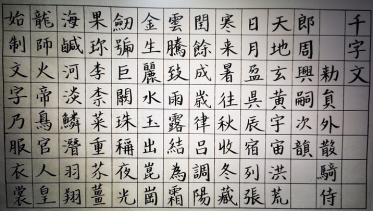 千字文
勅員外散騎侍
郎周興嗣次韻
天地玄黃宇宙洪荒
日月盈昃辰宿列張
寒来暑往秋收冬藏
閏餘成歲律呂調陽
雲騰致雨露結為霜
金生麗水玉出崑崗
劒號巨闕珠稱夜光
果珎李柰菜重芥薑
海鹹河淡鱗潛羽翔
龍師火帝鳥官人皇
始制文字乃服衣裳